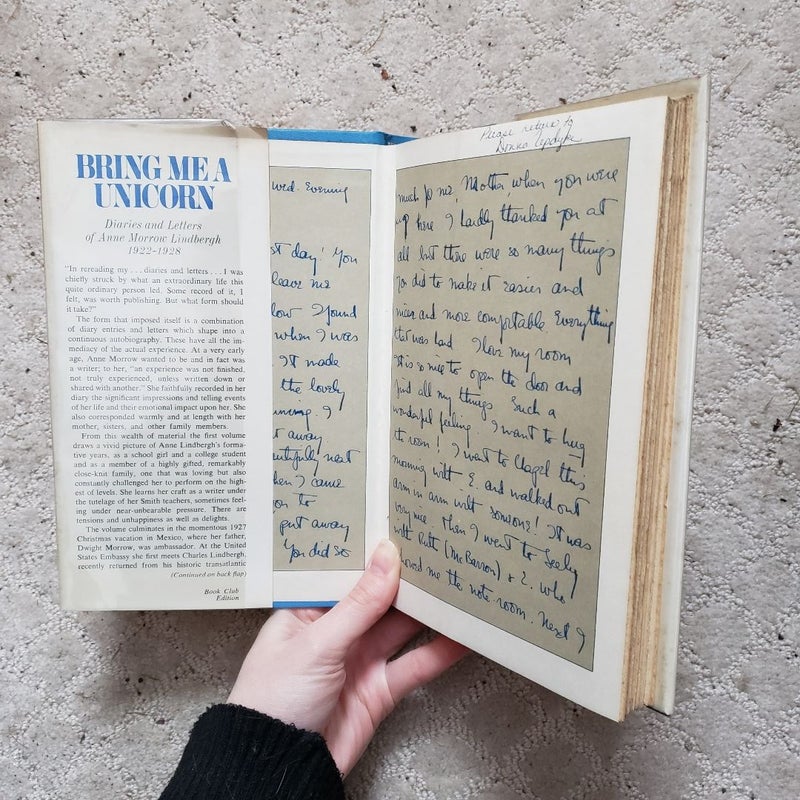 BRING ME A
UNICORN
Diaries and Letters
of Anne Morrow Lindbergh
1922-1928
"In rereading my . . . diaries and letters . . . I was
chiefly struck by what an extraordinary life this
quite ordinary person led. Some record of it, I
felt, was worth publishing. But what form should
it take?"
The form that imposed itself is a combination
of diary entries and letters which shape into a
continuous autobiography. These have all the im-
mediacy of the actual experience. At a very early
age, Anne Morrow wanted to be and in fact was
a writer; to her, "an experience was not finished,
not truly experienced, unless written down or
shared with another." She faithfully recorded in her
diary the significant impressions and telling events
of her life and their emotional impact upon her. She
also corresponded warmly and at length with her
mother, sisters, and other family members.
From this wealth of material the first volume
draws a vivid picture of Anne Lindbergh's forma-
tive years, as a school girl and a college student
and as a member of a highly gifted, remarkably
close-knit family, one that was loving but also
constantly challenged her to perform on the high-
est of levels. She learns her craft as a writer under
the tutelage of her Smith teachers, sometimes feel-
ing under near-unbearable pressure. There are
tensions and unhappiness as well as delights.
The volume culminates in the momentous 1927
Christmas vacation in Mexico, where her father,
Dwight Morrow, was ambassador. At the United
States Embassy she first meets Charles Lindbergh,
recently returned from his historic transatlantic
(Continued on back flap)
Book Club
Edition
Wed. Evening
st day! You
leave me
low I found
when I was
. It made
the lovely
I
t away
utifully neat
hen I came
on to
put away
You did so
Please return to
Donna
much for me, Mother, when you were
up here I hardly thanked you at
all but there were so many things
you did to make it easier and
nicer and more comfortable. Everything
that was hard. I love my room
It is so nice to open the door and
find all my things. Such a
wonderful feeling. I want to hug
the room! I went to Chapel this
morning with E. and walked out
arm in arm with someone! It was
very nice. Then I went to Seely
with Ruth (McBarron) & E. who
showed me the note-room. Next I